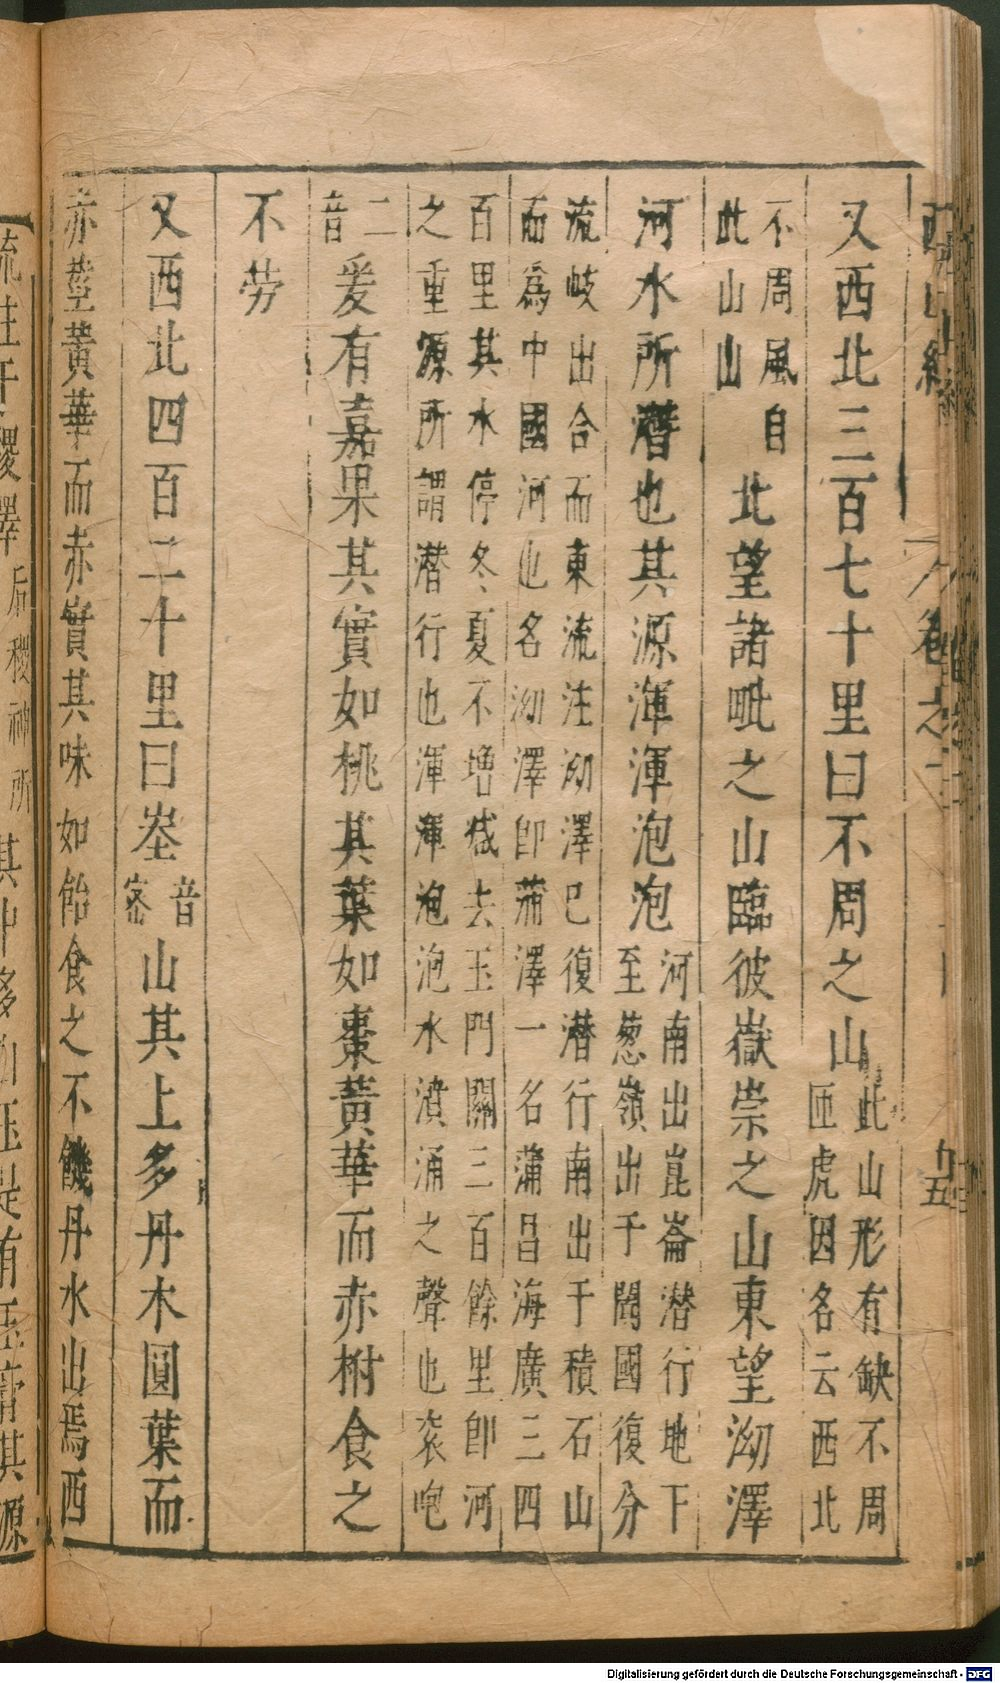 西山經 卷之二 九五
又西北三百七十里曰不周之山此山形有缺不周
匝處因名云西北
不周風自
此山山北望諸毗之山臨彼嶽崇之山東望泑澤
河水所潛也其源渾渾泡泡河南出崑崙潛行地下
至葱嶺出于闐國復分
流岐出合而東流注泑澤巳復潛行南出于積石山
而為中國河也名泑澤即蒲澤一名蒲昌海廣三四
百里其水停冬夏不增減去玉門關三百餘里即河
之重源所謂潛行也渾渾泡泡水濆涌之聲也袞咆
二
音爰有嘉果其實如桃其葉如棗黃華而赤柎食之
不勞
又西北四百二十里曰峚音
密山其上多丹木圓葉而
赤莖黃華而赤實其味如飴食之不饑丹水出焉西
流注于稷澤后稷神所其中多白玉是有玉膏其源
Digitalisierung gefördert durch die Deutsche Forschungsgemeinschaft - DFG